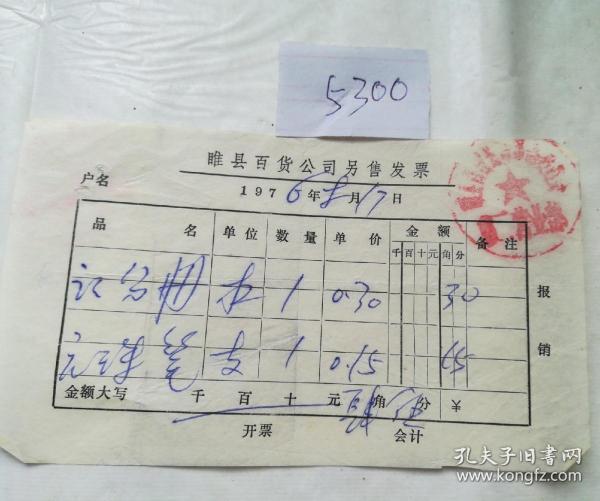 5300
睢县百货公司另售发票
户名
1976年8月17日
品名 单位 数量 单价 金额 备注
千百十元角分
记分册 本 1 0.30 30
元珠笔 支 1 0.15 15
报销
金额大写 千 百 十 元 肆角伍分 ¥
开票 会计
孔夫子旧书网
www.kongfz.com